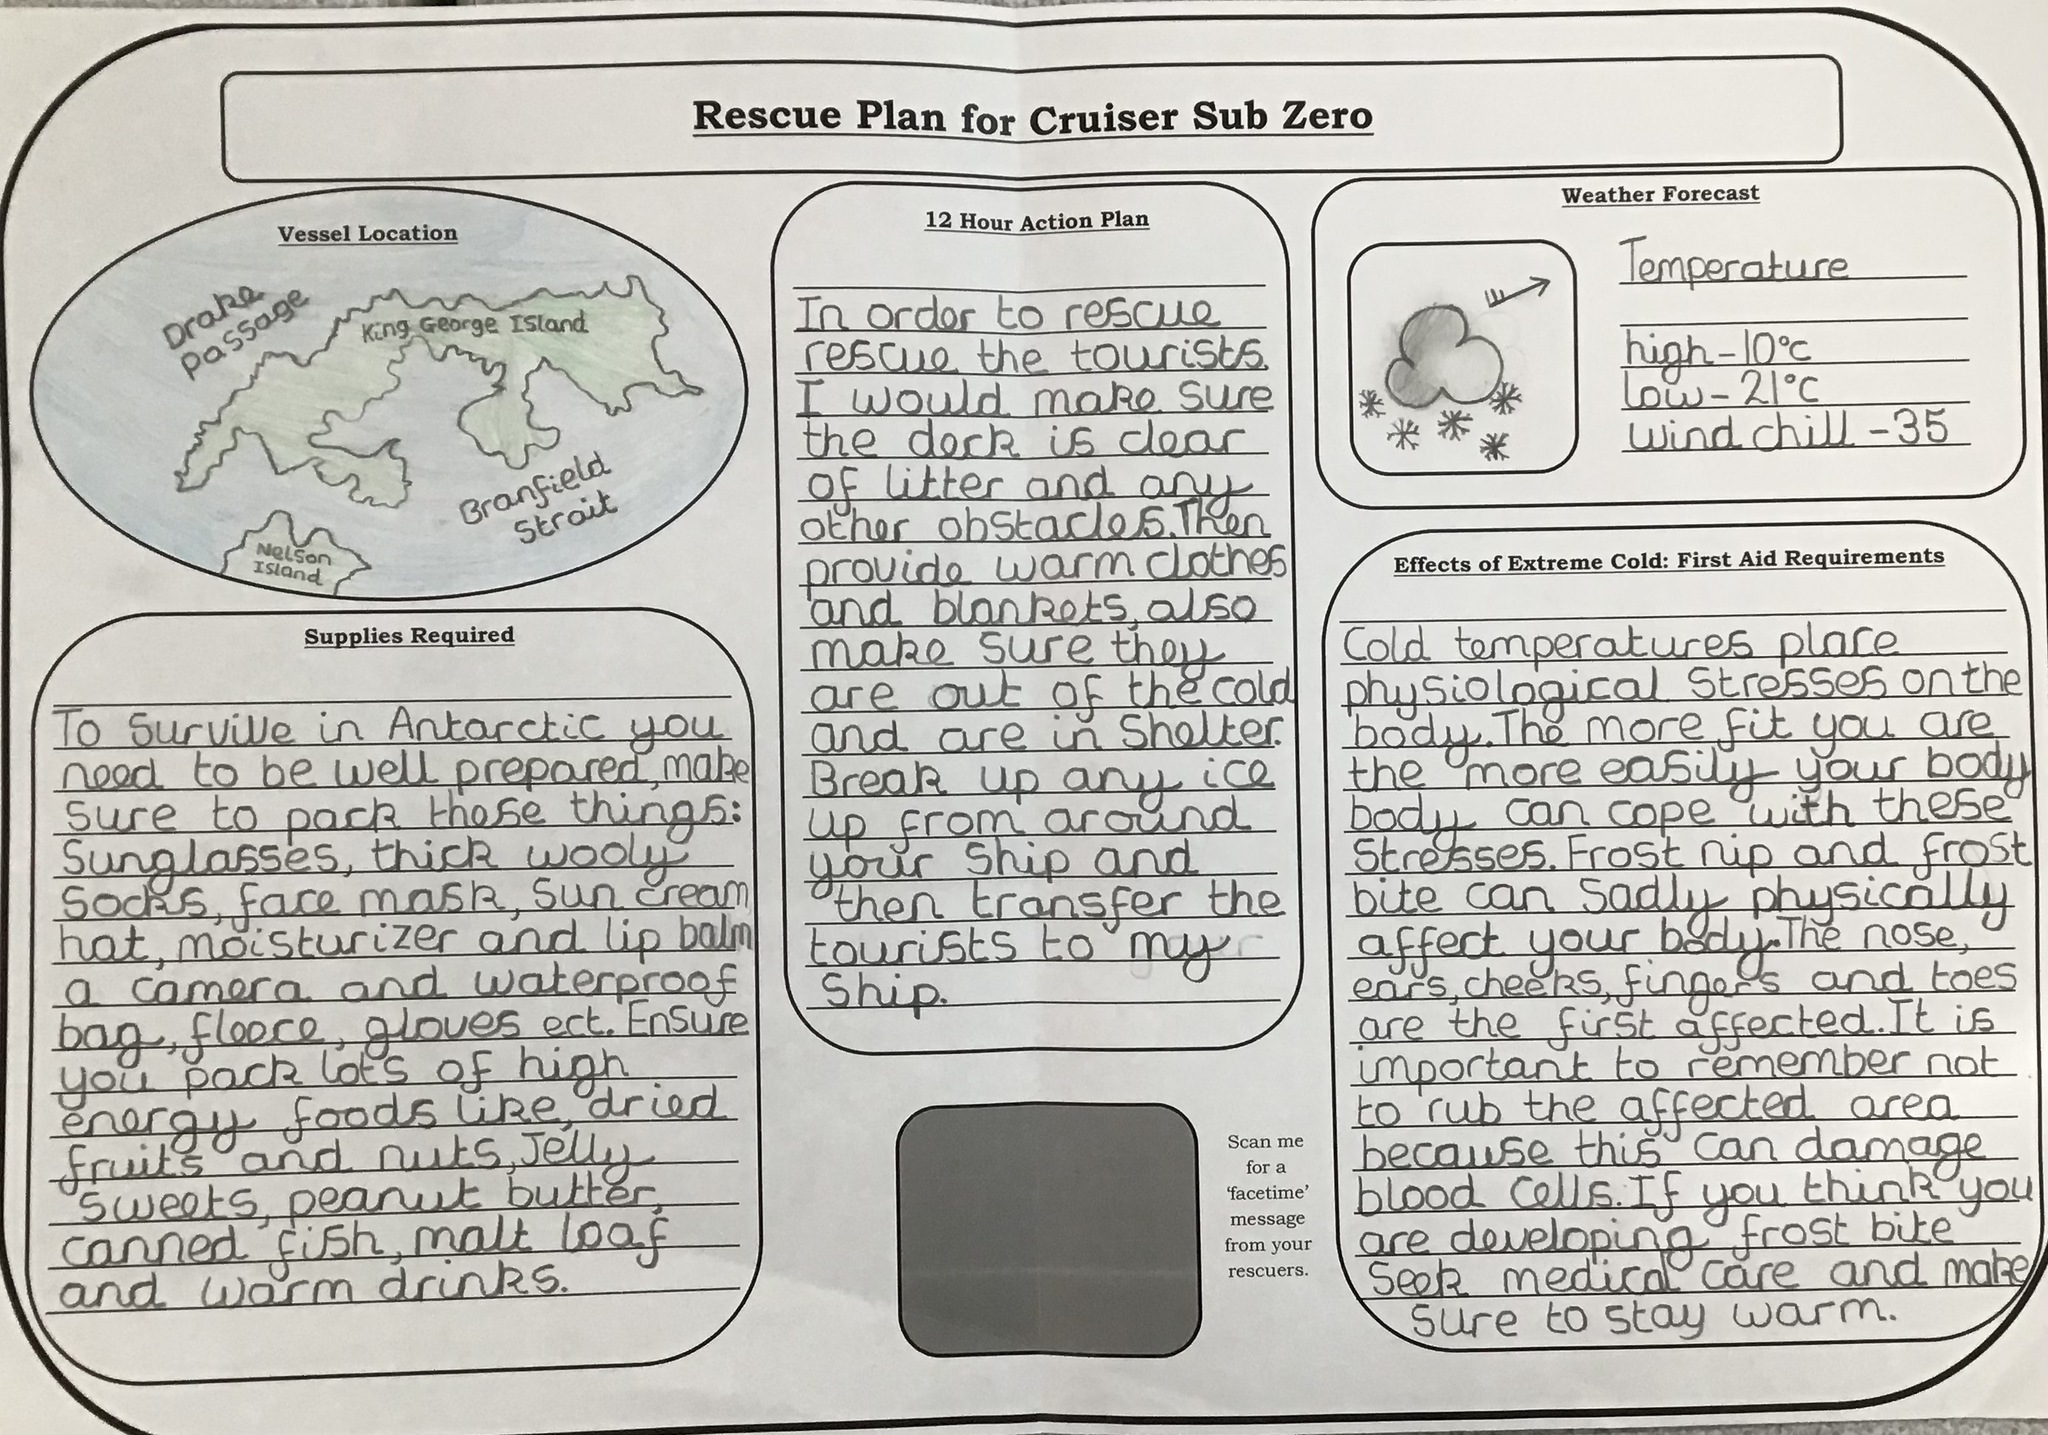 Rescue Plan for Cruiser Sub Zero
Vessel Location
Drake
Passage
King George Island
Branfield
Strait
Nelson
Island
Supplies Required
To Survive in Antarctic you
need to be well prepared, make
sure to pack these things:
Sunglasses, thick wooly
Socks, face mask, Sun cream
hat, moisturizer and lip balm
a camera and waterproof
bag, fleece, gloves ect. Ensure
you pack lots of high
energy foods like, dried
fruits and nuts, Jelly
sweets, peanut butter,
canned fish, malt loaf
and warm drinks.
12 Hour Action Plan
In order to rescue
rescue the tourists.
I would make sure
the deck is clear
of litter and any
other obstacles. Then
provide warm clothes
and blankets, also
make sure they
are out of the cold
and are in Shelter.
Break up any ice
up from around
your Ship and
then transfer the
tourists to my
Ship.
Scan me
for a
'facetime'
message
from your
rescuers.
Weather Forecast
Temperature
high -10°c
low -21°c
wind chill -35
Effects of Extreme Cold: First Aid Requirements
Cold temperatures place
physiological Stresses on the
body. The more fit you are
the more easily your body
body can cope with these
Stresses. Frost nip and frost
bite can Sadly physically
affect your body. The nose,
ears, cheeks, fingers and toes
are the first affected. It is
important to remember not
to rub the affected area
because this can damage
blood cells. If you think you
are developing frost bite
Seek medical care and make
sure to stay warm.